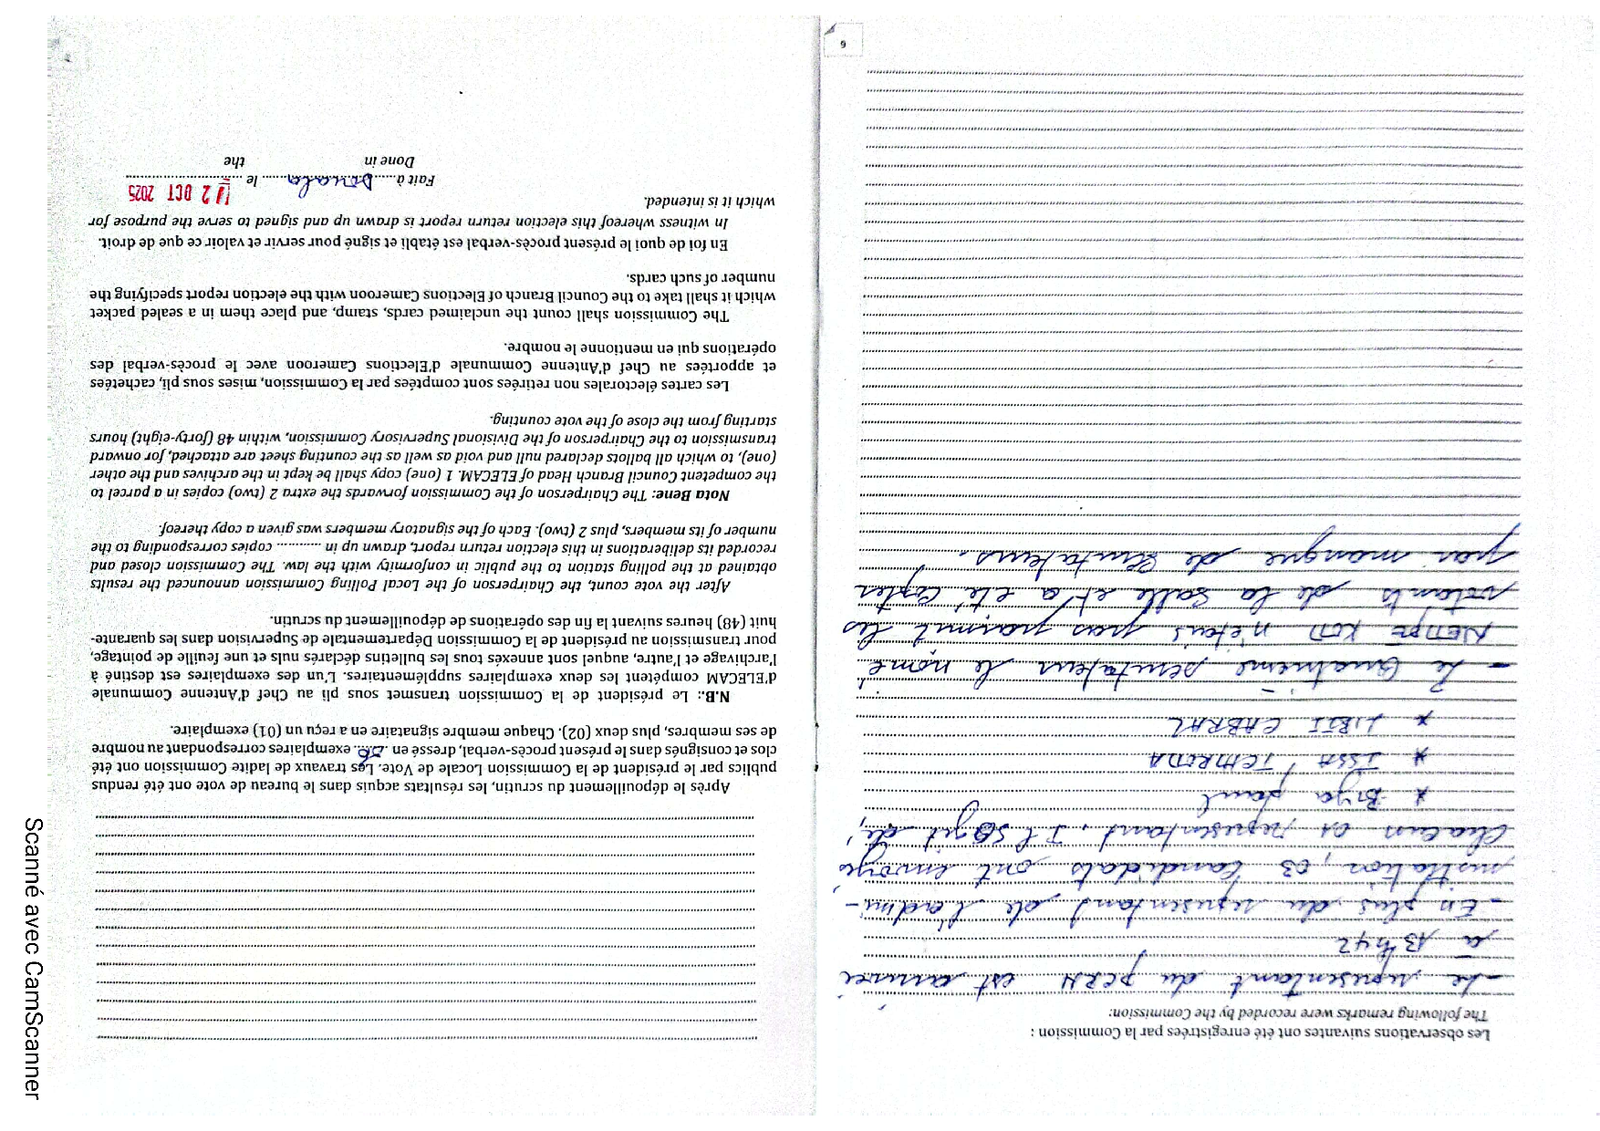 Les observations suivantes ont été enregistrées par la Commission :
The following remarks were recorded by the Commission:
- Le representant du PCRN est arrivé
à 13h42
- En plus du representant de l'admi-
nistration, 03 Candidats ont envoyé
chacun 01 representant. Il s'agit de;
* Biya paul
* ISSA TCHIROMA
* LIBII CABRAL
- Le quatrième scrutateur le nomé
n'etais pas parimt les
votants de la salle et a eté
par manque de Scrutateurs.
6
Après le dépouillement du scrutin, les résultats acquis dans le bureau de vote ont été rendus
publics par le président de la Commission Locale de Vote. Les travaux de ladite Commission ont été
clos et consignés dans le présent procès-verbal, dressé en ........ exemplaires correspondant au nombre
de ses membres, plus deux (02). Chaque membre signataire en a reçu un (01) exemplaire.
N.B.: Le président de la Commission transmet sous pli au Chef d'Antenne Communale
d'ELECAM compétent les deux exemplaires supplémentaires. L'un des exemplaires est destiné à
l'archivage et l'autre, auquel sont annexés tous les bulletins déclarés nuls et une feuille de pointage,
pour transmission au président de la Commission Départementale de Supervision dans les quarante-
huit (48) heures suivant la fin des opérations de dépouillement du scrutin.
After the vote count, the Chairperson of the Local Polling Commission announced the results
obtained at the polling station to the public in conformity with the law. The Commission closed and
recorded its deliberations in this election return report, drawn up in ........... copies corresponding to the
number of its members, plus 2 (two). Each of the signatory members was given a copy thereof.
Nota Bene: The Chairperson of the Commission forwards the extra 2 (two) copies in a parcel to
the competent Council Branch Head of ELECAM. 1 (one) copy shall be kept in the archives and the other
(one), to which all ballots declared null and void as well as the counting sheet are attached, for onward
transmission to the Chairperson of the Divisional Supervisory Commission, within 48 (forty-eight) hours
starting from the close of the vote counting.
Les cartes électorales non retirées sont comptées par la Commission, mises sous pli, cachetées
et apportées au Chef d'Antenne Communale d'Elections Cameroon avec le procès-verbal des
opérations qui en mentionne le nombre.
The Commission shall count the unclaimed cards, stamp, and place them in a sealed packet
which it shall take to the Council Branch of Elections Cameroon with the election report specifying the
number of such cards.
En foi de quoi le présent procès-verbal est établi et signé pour servir et valoir ce que de droit.
In witness whereof this election return report is drawn up and signed to serve the purpose for
which it is intended.
Fait à Douala le 12 OCT 2025
Done in the
Scanné avec CamScanner